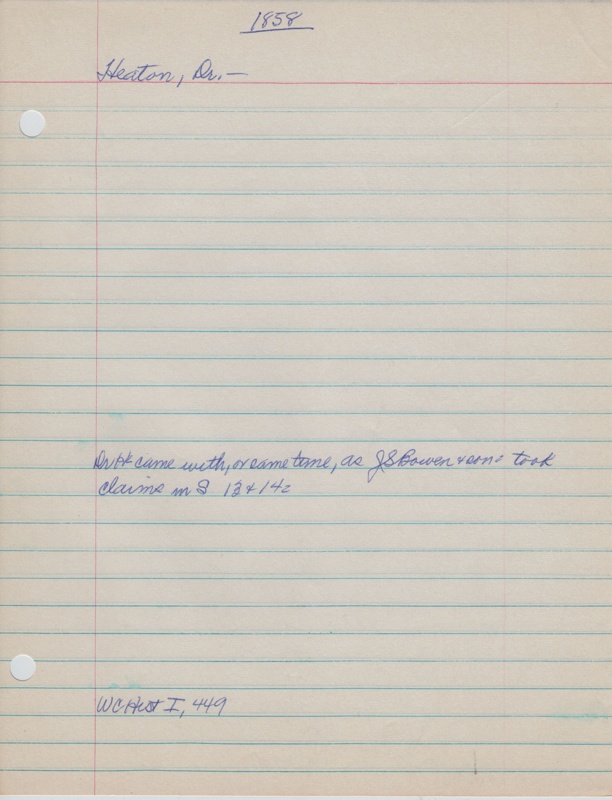 1858
Heaton, Dr.—
Dr H came with, or same time, as J S Bowen & son: took
claims in S 13 & 14:
WC Hist I, 449